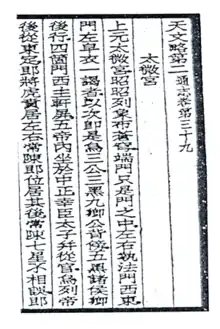 天文略第二　通志卷第三十九
太微宮
上元太微宮昭昭列象布蒼穹端門只是門之中左右執法門西東
門左皁衣一謁者以次即是烏三公三黑九卿公背傍五黑諸侯卿
後行四箇門西主軒屏五帝内坐於中正幸臣太子并從官烏列帝
後從東定郎將虎賁居左右常陳郎位居其後常陳七星不相誤郎